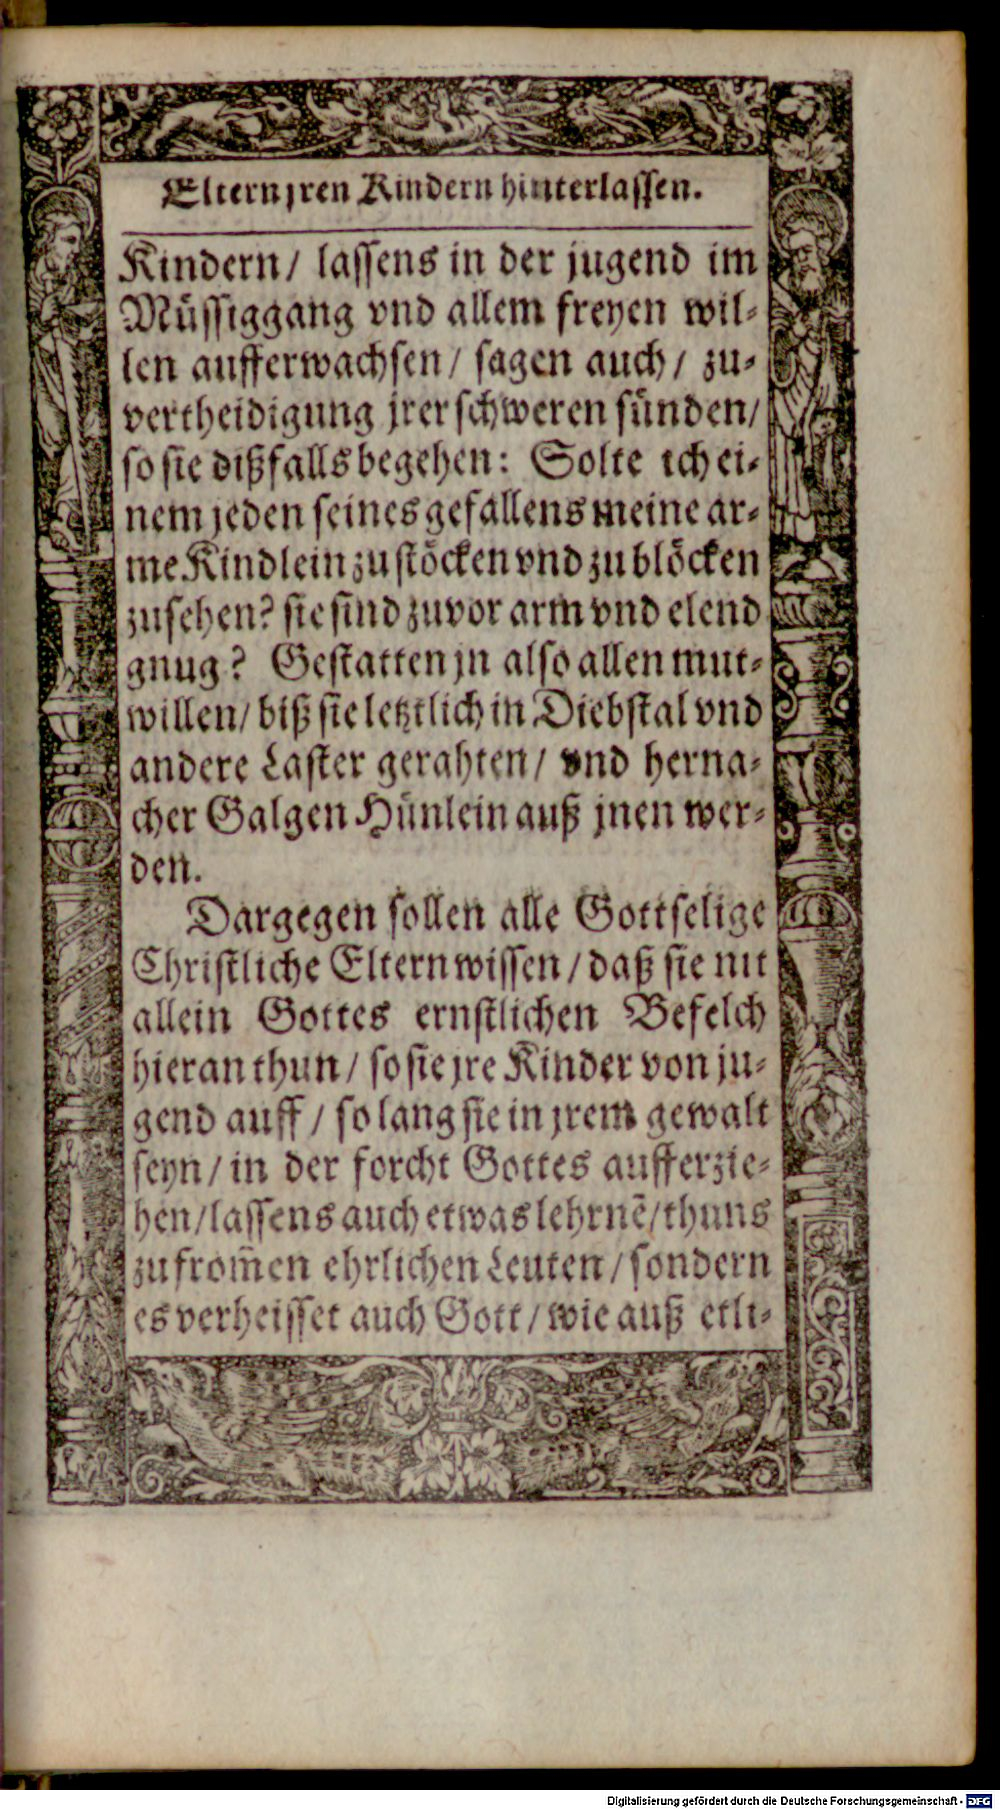 Eltern jren Kindern hinterlassen.
Kindern / lassens in der jugend im
Müssiggang vnd allem freyen wil-
len aufferwachsen / sagen auch / zu-
vertheidigung jrer schweren sünden /
so sie dißfalls begehen: Solte ich ei-
nem jeden seines gefallens meine ar-
me Kindlein zu stöcken vnd zu blöcken
zusehen? sie sind zuvor arm vnd elend
gnug? Gestatten jn also allen mut-
willen / biß sie letztlich in Diebstal vnd
andere Laster gerahten / vnd herna-
cher Galgen Hünlein auß jnen wer-
den.
Dargegen sollen alle Gottselige
Christliche Eltern wissen / daß sie nit
allein Gottes ernstlichen Befelch
hieran thun / so sie jre Kinder von ju-
gend auff / so lang sie in jrem gewalt
seyn / in der forcht Gottes aufferzie-
hen / lassens auch etwas lehrnẽ / thuns
zu from̃en ehrlichen Leuten / sondern
es verheisset auch Gott / wie auß etli-
Digitalisierung gefördert durch die Deutsche Forschungsgemeinschaft - DFG